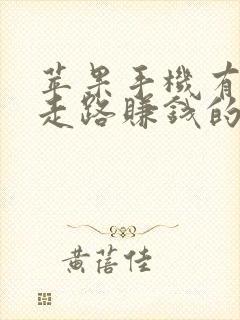 苹果手機有
走路賺錢的
黄蓓佳